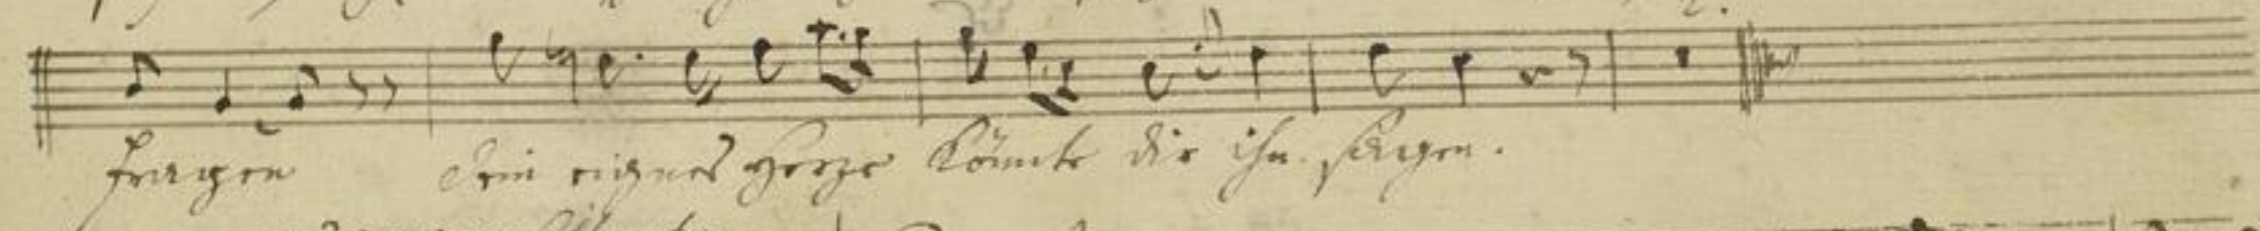 fragen dein eignes Herze könnte dir ihn sagen.